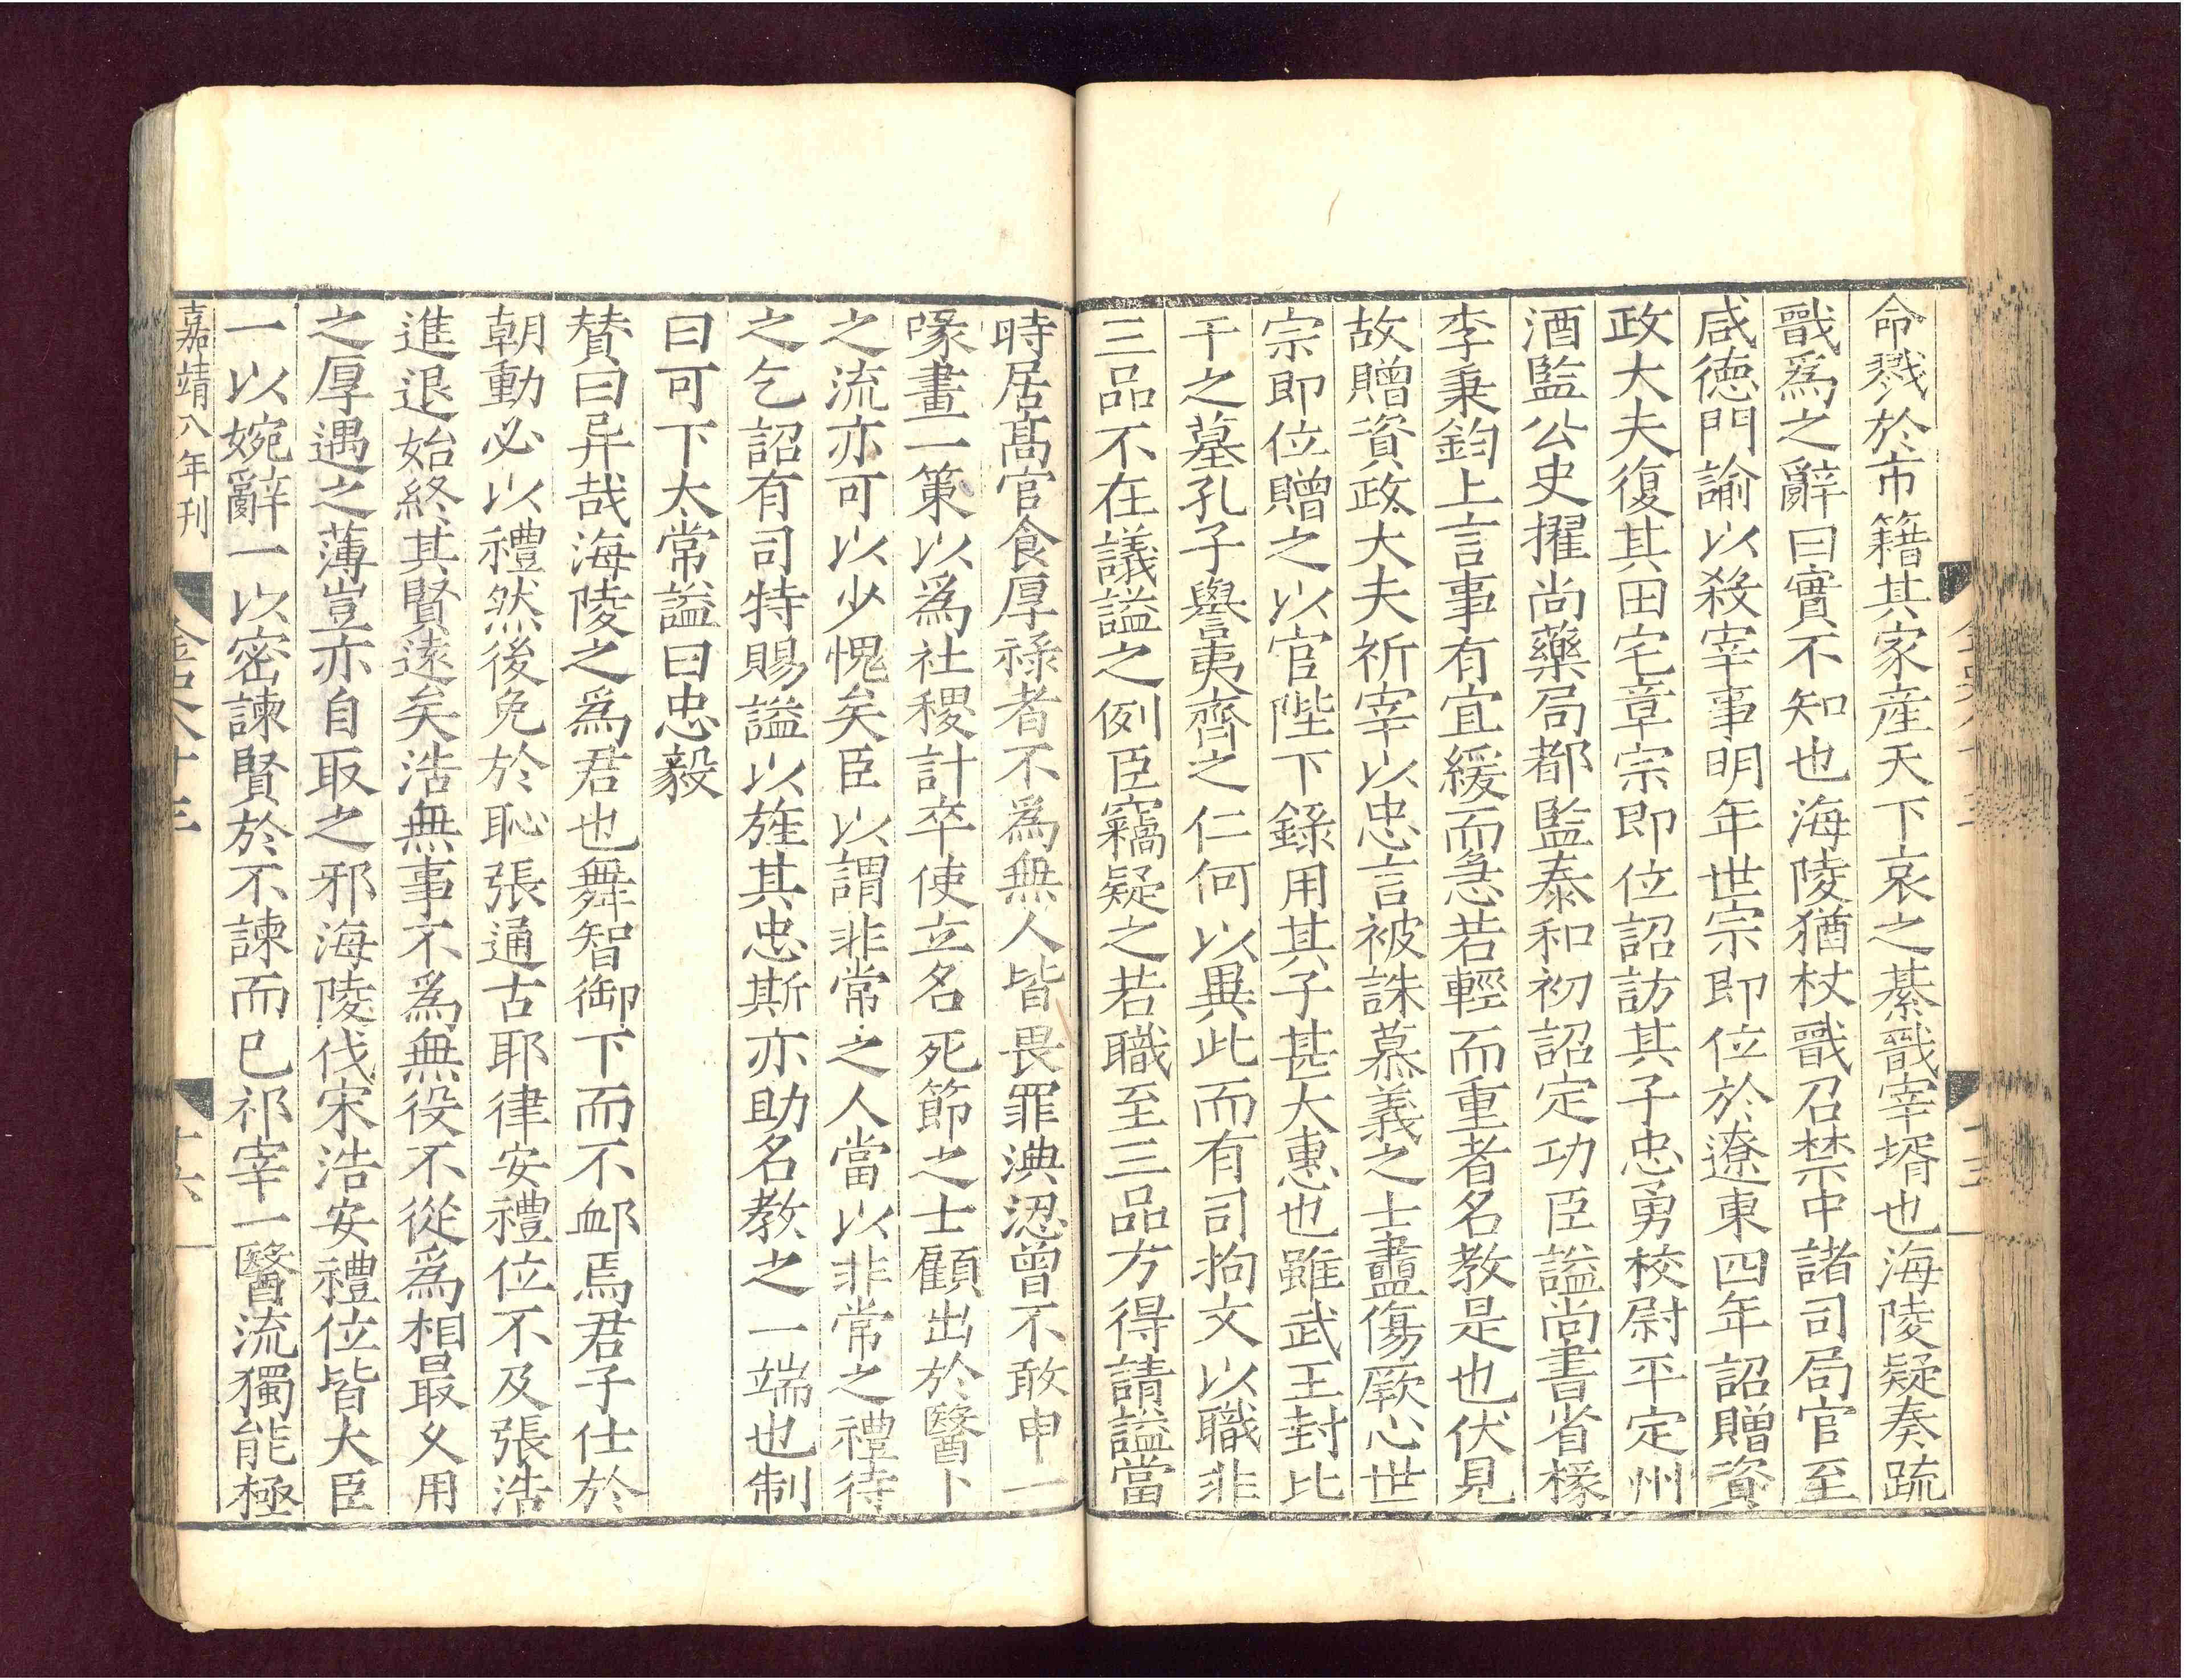 命戮於市籍其家産天下哀之綦戩宰壻也海陵疑奏疏
戩爲之辭曰實不知也海陵猶杖戩召禁中諸司局官至
咸德門諭以殺宰事明年世宗即位於遼東四年詔贈資
政大夫復其田宅章宗即位詔訪其子忠勇校尉平定州
酒監公史擢尚藥局都監泰和初詔定功臣謚尚書省掾
李秉鈞上言事有宜緩而急若輕而重者名教是也伏見
故贈資政大夫祈宰以忠言被誅慕義之士盡傷厥心世
宗即位贈之以官陛下錄用其子甚大惠也雖武王封比
干之墓孔子譽夷齊之仁何以異此而有司拘文以職非
三品不在議謚之例臣竊疑之若職至三品方得請謚當
時居髙官食厚祿者不爲無人皆畏罪淟涊曾不敢申一
喙畫一策以爲社稷計卒使立名死節之士顧出於醫卜
之流亦可以少愧矣臣以謂非常之人當以非常之禮待
之乞詔有司特賜謚以旌其忠斯亦助名教之一端也制
曰可下太常謚曰忠毅
賛曰异哉海陵之爲君也舞智御下而不䘏焉君子仕於
朝動必以禮然後免於恥張通古耶律安禮位不及張浩
進退始終其賢遠矣浩無事不爲無役不從爲相最乆用
之厚遇之薄豈亦自取之邪海陵伐宋浩安禮位皆大臣
一以婉辭一以密諫賢於不諫而已祁宰一醫流獨能極
嘉靖八年刊
金史八十三
十六